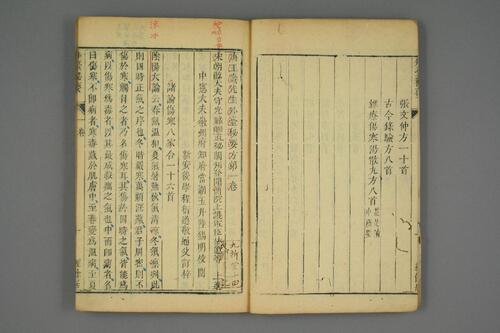 張文仲方一十首
古今錄驗方八首
雜療傷寒湯散丸方八首
王燾先生外臺秘要方第一卷
宋朝散大夫守光祿卿直秘閣判登聞檢院上護軍臣林億等上進
中憲大夫徽州府知府當湖玉井陸錫明校閱
新安後學程衍道敬通父訂梓
諸論傷寒八家合一十六首
陰陽大論云春氣溫和夏氣暑熱秋氣清涼冬氣凜冽此
則四時正氣之序也冬時嚴寒萬類深藏君子周密則不
傷於寒觸冒之者乃名傷寒耳其傷於四時之氣皆能為
病以傷寒為毒者以其最成殺癘之氣也中而即病者名
曰傷寒不即病者寒毒藏於肌膚中至春變為溫病至夏